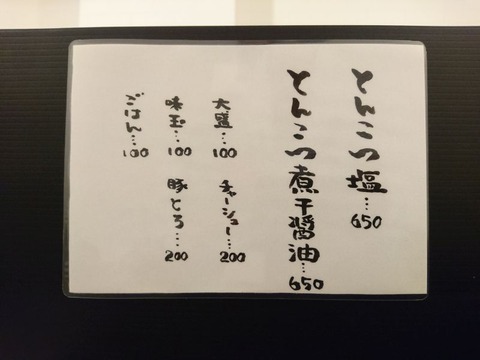 とんこつ塩…650
とんこつ煮干醤油…650
大盛…100
チャーシュー…200
味玉…100
豚とろ…200
ごはん…100